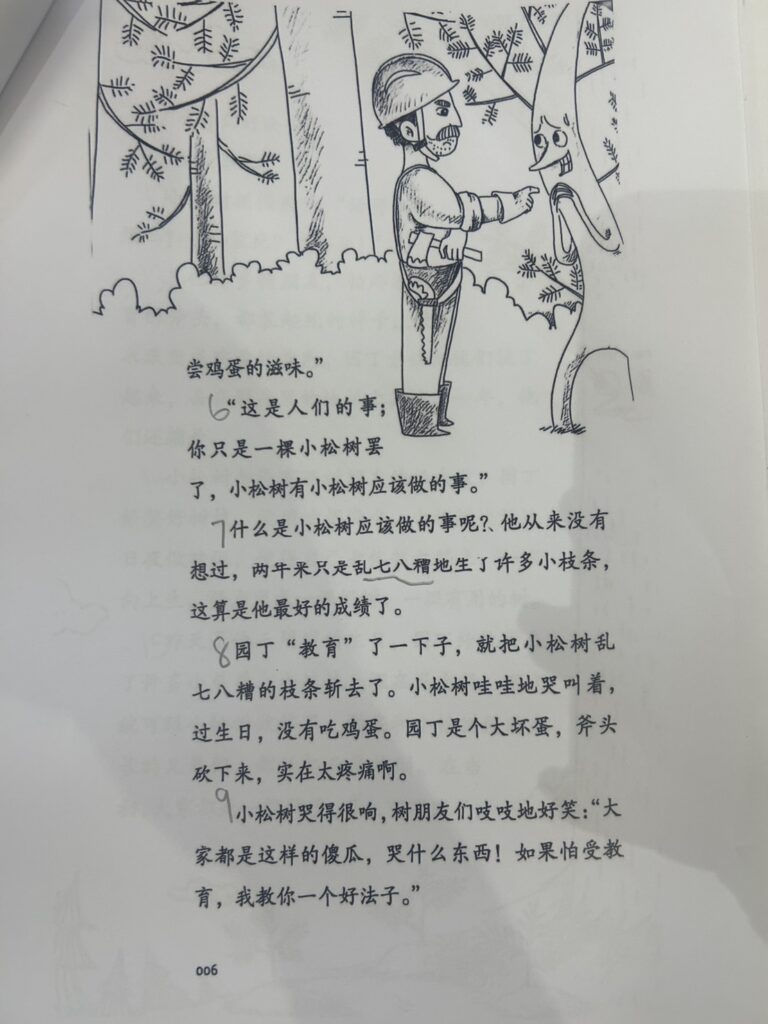 尝鸡蛋的滋味。”
6“这是人们的事；
你只是一棵小松树罢
了，小松树有小松树应该做的事。”
7什么是小松树应该做的事呢?、他从来没有
想过，两年来只是乱七八糟地生了许多小枝条，
这算是他最好的成绩了。
8园丁“教育”了一下子，就把小松树乱
七八糟的枝条斩去了。小松树哇哇地哭叫着，
过生日，没有吃鸡蛋。园丁是个大坏蛋，斧头
砍下来，实在太疼痛啊。
9小松树哭得很响，树朋友们吱吱地好笑：“大
家都是这样的傻瓜，哭什么东西！如果怕受教
育，我教你一个好法子。”
006